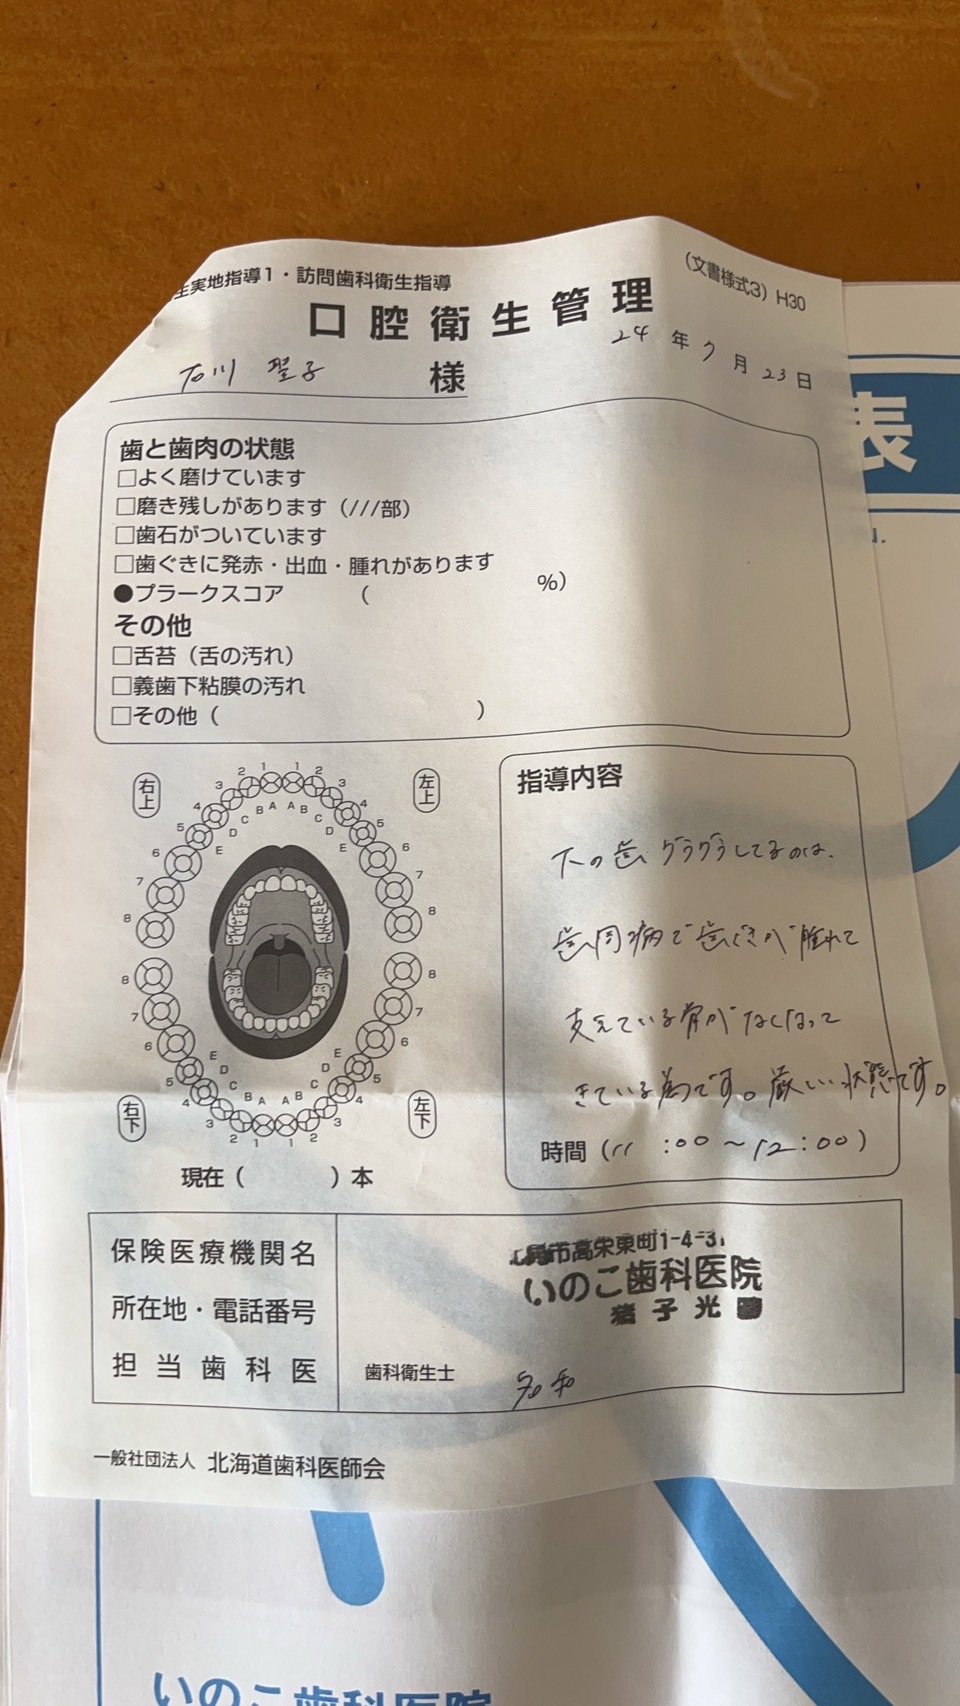 生実地指導1・訪問歯科衛生指導
(文書様式3) H30
口腔衛生管理
24年7月23日
石川 聖子 様
歯と歯肉の状態
□よく磨けています
□磨き残しがあります(///部)
□歯石がついています
□歯ぐきに発赤・出血・腫れがあります
●プラークスコア ( %)
その他
□舌苔(舌の汚れ)
□義歯下粘膜の汚れ
□その他( )
右上
左上
1 1
2 2
3 3
4 4
5 5
6 6
7 7
8 8
A A
B B
C C
D D
E E
8 8
7 7
6 6
5 5
4 4
3 3
2 2
1 1
E E
D D
C C
B A A B
右下
左下
現在( )本
指導内容
下の歯グラグラしてるのは、
歯周病で歯ぐきが腫れて
支えている骨がなくなって
きている為です。厳しい状態です。
時間(11:00~12:00)
保険医療機関名
所在地・電話番号
担当歯科医
見市高栄東町1-4-31
いのこ歯科医院
猪子光
歯科衛生士
一般社団法人 北海道歯科医師会
表
いのこ歯科医院